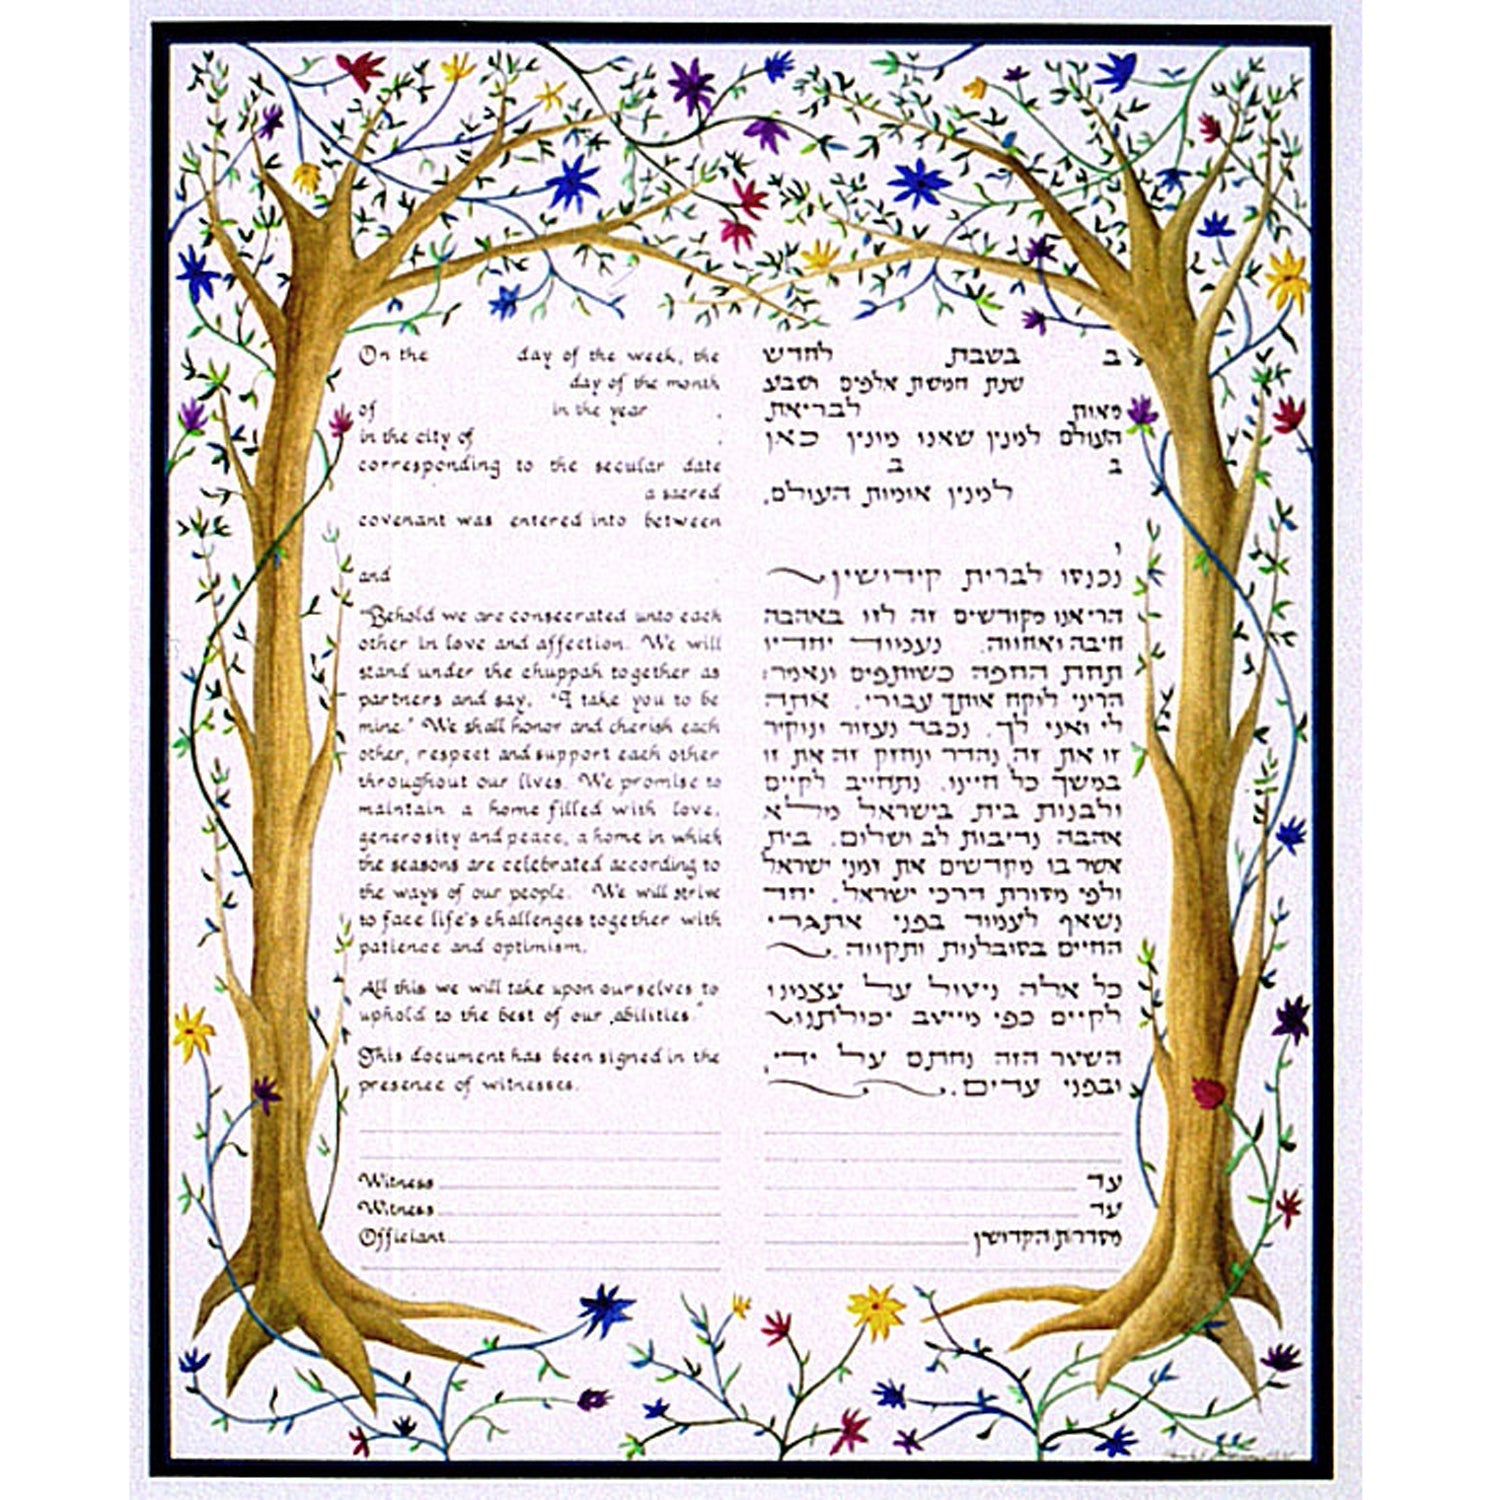 On the day of the week, the
day of the month
of in the year .
in the city of ,
corresponding to the secular date
a sacred
covenant was entered into between
and
"Behold we are consecrated unto each
other in love and affection. We will
stand under the chuppah together as
partners and say, "I take you to be
mine." We shall honor and cherish each
other, respect and support each other
throughout our lives. We promise to
maintain a home filled with love,
generosity and peace, a home in which
the seasons are celebrated according to
the ways of our people. We will strive
to face life's challenges together with
patience and optimism.
All this we will take upon ourselves to
uphold to the best of our abilities."
This document has been signed in the
presence of witnesses.
Witness
Witness
Officiant
ב בשבת לחדש
שנת חמשת אלפים ושבע
מאות לבריאת
העולם למנין שאנו מונין כאן
ב ב
למנין אומות העולם,
ו
נכנסו לברית קידושין
הריאנו מקודשים זה לזו באהבה
חיבה ואחווה. נעמוד יחדיו
תחת החפה כשותפים ונאמר:
הריני לוקח אותך עבורי. אתה
לי ואני לך. נכבד נעזור ונוקיר
זו את זה, נהדר ונחזק זה את זו
במשך כל חיינו. נתחייב לקיים
ולבנות בית בישראל מלא
אהבה נדיבות לב ושלום. בית
אשר בו מקדשים את זמני ישראל
ולפי מסורת דרכי ישראל. יחד
נשאף לעמוד בפני אתגרי
החיים בסובלנות ותקווה.
כל אלה ניטול על עצמינו
לקיים כפי מייטב יכולתנו
השטר הזה נחתם על ידי,
ובפני עדים.
עד
עד
מסדרת הקדושין